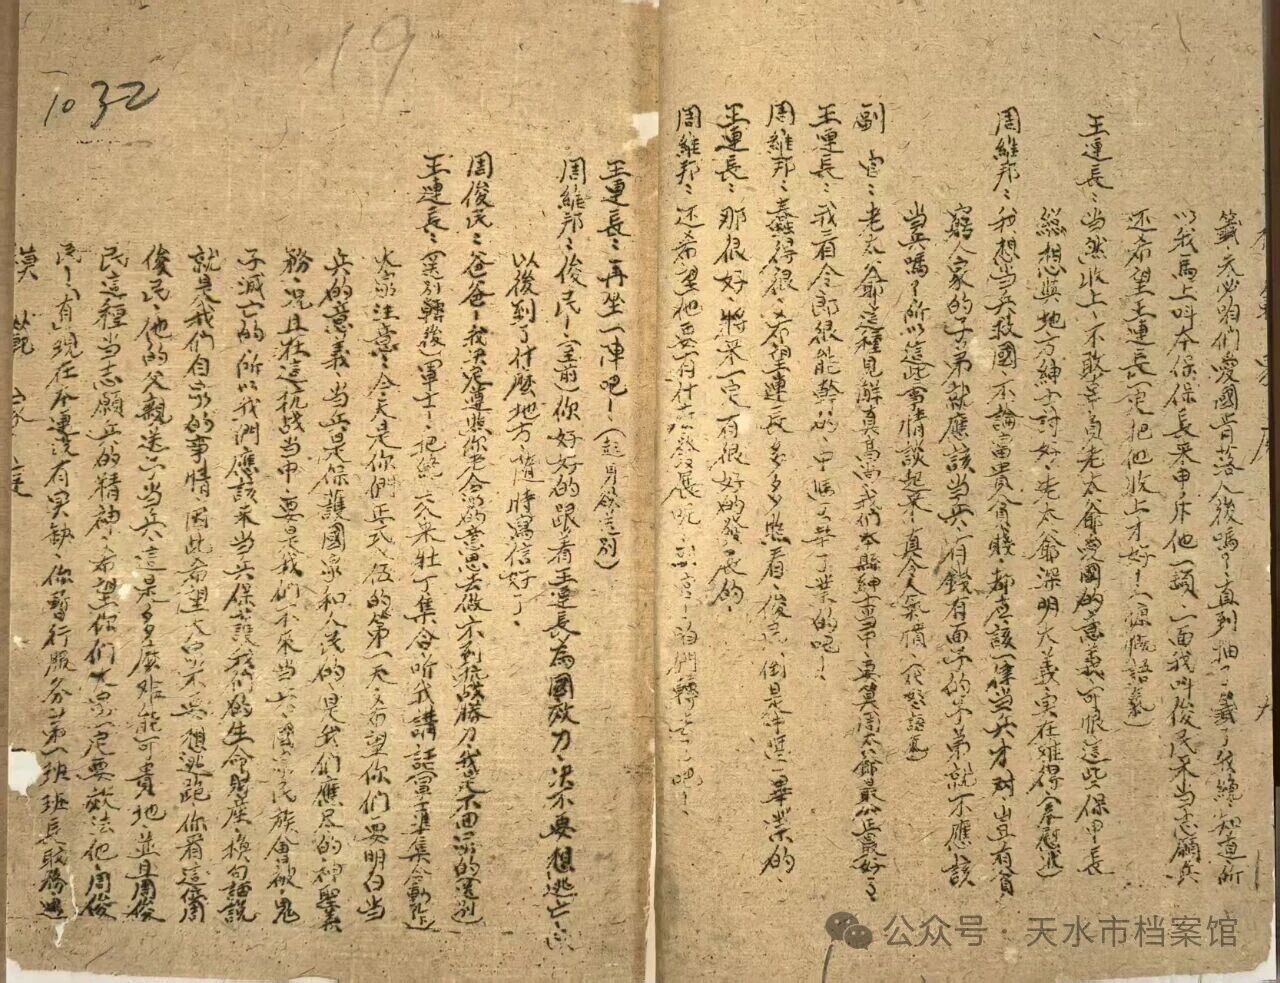 籤天必咱們愛國肯落人後嗎？直到抽了籤了我纔知道所
以我馬上叫本保保長來申斥他一頓、一面我叫俊民來当志願兵
还希望王連長一定把他收上才好！（慷慨語氣）
王連長：当然收上！不敢辜負老太爺愛國的意義可恨這些保甲長
總想與地方紳士討好、老太爺深明大義、实在難得（奉慰選）
周維邦：我想当兵救國不論富貴貧賤、都应該一律当兵才对、豈有貧
窮人家的子弟就應該当兵、有錢有面子的子弟就不應該
当兵嗎？所以這些事情談起來真令人氣憤（忿怒語氣）
副官：老太爺這種見解真高尚我們本縣紳士当中要算周太爺最公正最好了
王連長：我看令郎很能幹的、中學畢了業的吧！
周維邦：蠢得很、又希望連長多多照看、俊民倒是中學畢業的、
王連長：那很好、將来一定有很好的發展的、
周維邦：还希望他要有什么發展呢、副官！咱們轉去了吧！
王連長：再坐一陣吧！（起身欲送別）
周維邦：俊民！（至前）你好好的跟着王連長為國效力、决不要想逃亡、
以後到了什麼地方隨時寫信好了、
周俊民：爸爸！我决定遵照你老人家的意思去做、不到抗战勝利我是不回家的（送別）
王連長：（送別轉後）軍士！把 来壮丁集合听我講話（軍士集合動作）
大家注意、今天是你們正式入伍的第一天、又希望你們要明白当
兵的意義、当兵是保護國家和人民的、是我们應尽的神聖義
務、况且在這抗战当中、要是我们不来当兵、國家民族會被鬼
子滅亡的、所以我們應該来当兵保護我们的生命財產、换句話說
就是我们自家的事情、因此希望大家不要想逃跑、你看這個周
俊民、他的父親送他当兵、這是多麼好能可貴地、並且周俊
民這種当志願兵的精神、希望你们大家一定要效法他、周俊
民！（有）現在本連沒有实缺、你暫行服务第一班班長職務、過
19
1032
公众号 · 天水市档案馆